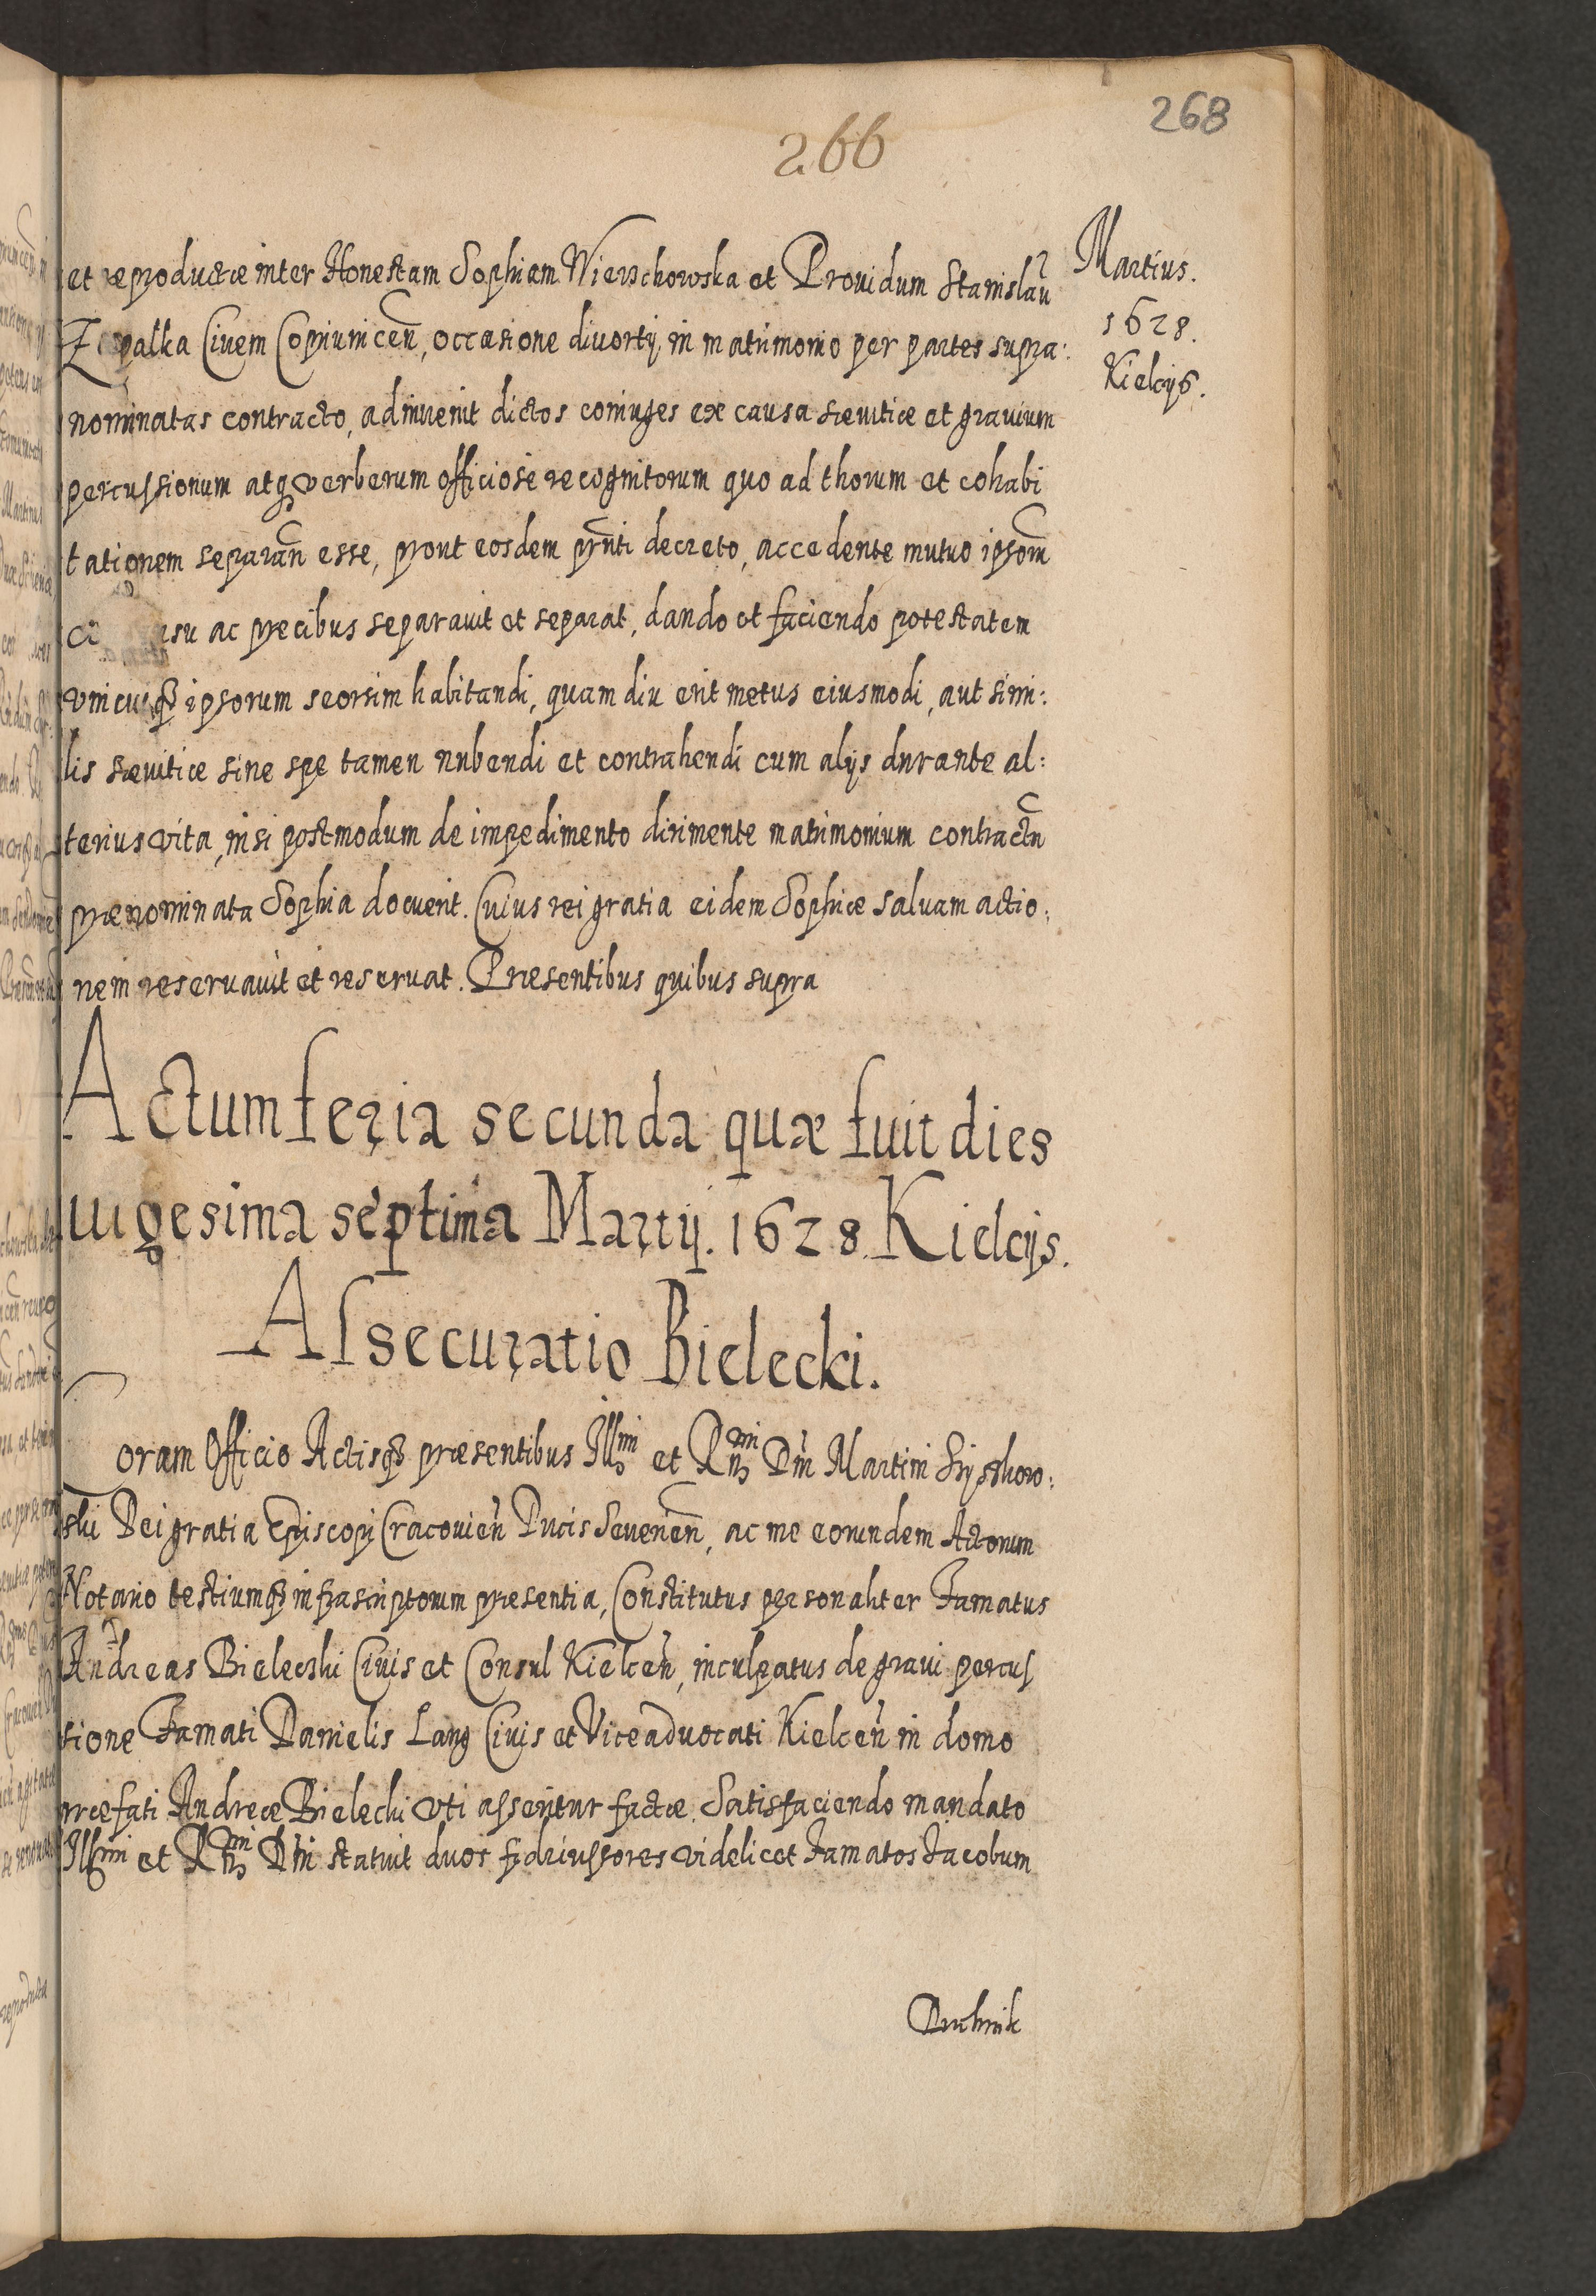 268
266
Martius.
1628.
Kielcijs.
et reproductæ inter Honestam Sophiam Wierschowska et Prouidum Stanislau̅
Ciuem Copriunicen̅, occasione diuortij, in matrimonio per partes supra:
nominatas contracto, adinuenit dictos coniuges ex causa sæuitiæ et grauium
percussionum atq verberum officiose recognitorum quo ad thorum et cohabi
tationem separan̅ esse, prout eosdem pr̅nti decreto, accedente mutuo ipsom̅
ac precibus separauit et separat, dando et faciendo potestatem
vnicuiq ipsorum seorsim habitandi, quam diu erit metus eiusmodi, aut simi:
lis sæuitiæ sine spe tamen nubendi et contrahendi cum alijs durante al:
terius vita, nisi postmodum de impedimento dirimente matrimonium contractu̅
prænominata Sophia docuerit. Cuius rei gratia eidem Sophiæ saluam actio:
nem reseruauit et reseruat. Præsentibus quibus supra
Actum feria secunda quæ fuit dies
uigesima septima Martij. 1628. Kielcijs.
Assecuratio Bielecki.
Coram Officio Actisq præsentibus Illmi et Rndmi Dni Martini Szyszkow:
ski Dei gratia Episcopi Cracouien̅ Ducis Seuerien̅, ac me eorundem Actorum
Notario testiumq infrascriptorum præsentia, Constitutus personaliter Famatus
Andreas Bielecki Ciuis et Consul Kielcen̅, inculpatus de graui percus
sione Famati Danielis Lang Ciuis et Viceaduocati Kielcen̅ in domo
præfati Andreæ Bielecki vti asseritur factæ. Satisfaciendo mandato
Illmi et Rndmi Dni statuit duos fideiussores videlicet Famatos Jacobum
Duchnik